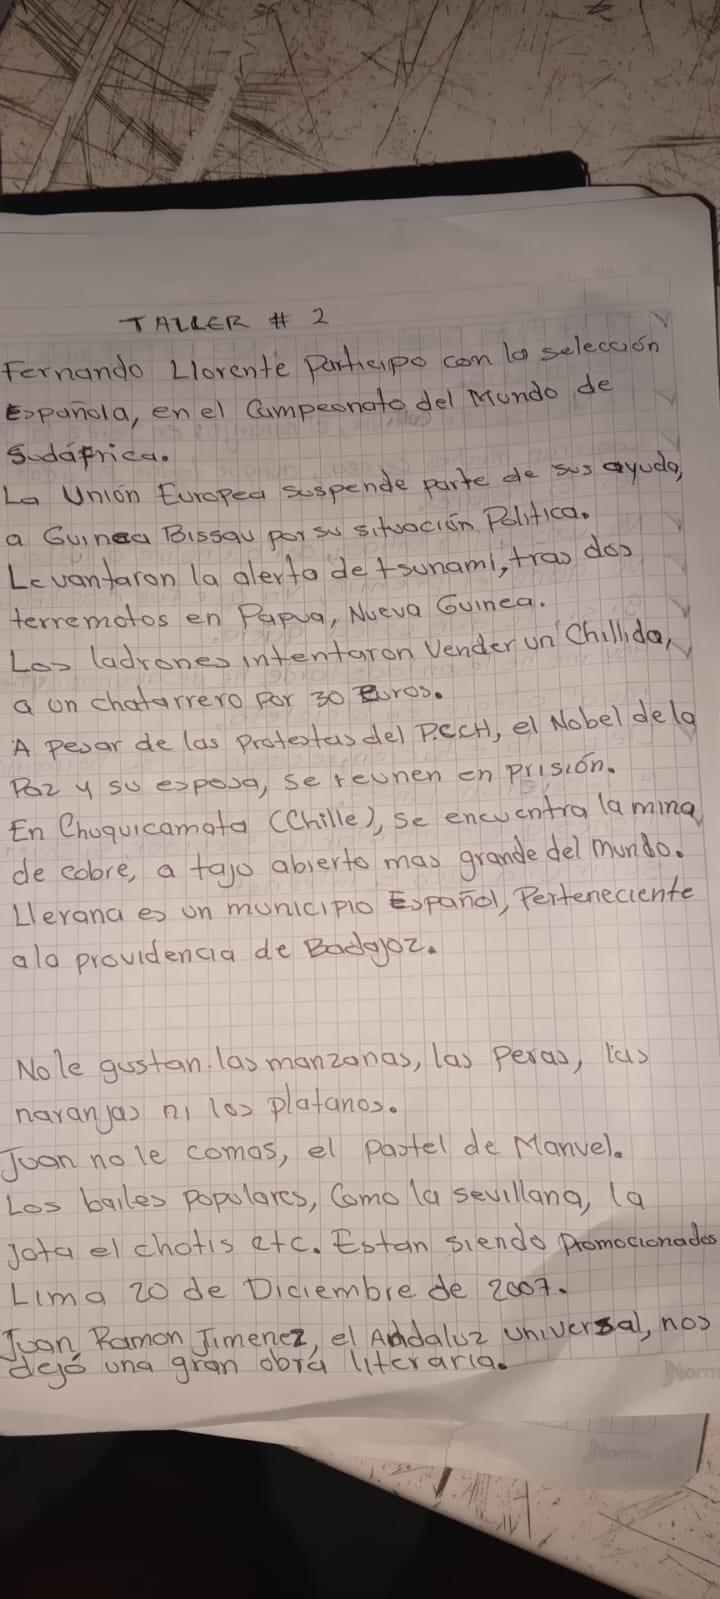 TALLER # 2
Fernando Llorente Participo con la selección
Española, en el Campeonato del Mundo de
Sudáfrica.
La Unión Europea suspende parte de sus ayuda,
a Guinea Bissau por su situación Política.
Levantaron la alerta de tsunami, tras dos
terremotos en Papua, Nueva Guinea.
Los ladrones intentaron Vender un Chillida,
a un chatarrero por 30 Euros.
A pesar de las Protestas del P.CCH, el Nobel de la
Paz y su esposa, se reunen en prisión.
En Chuquicamata (Chille), se encuentra la mina
de cobre, a tajo abierto mas grande del mundo.
Llerana es un municipio Español, Perteneciente
a la providencia de Badajoz.
No le gustan. las manzanas, las Peras, las
naranjas ni los platanos.
Juan no le comas, el pastel de Manuel.
Los bailes populares, Como la sevillana, la
jota el chotis etc. Estan siendo promocionados
Lima 20 de Diciembre de 2007.
Juan Ramon Jimenez, el Andaluz universal, nos
dejó una gran obra literaria.
Norma
Norma